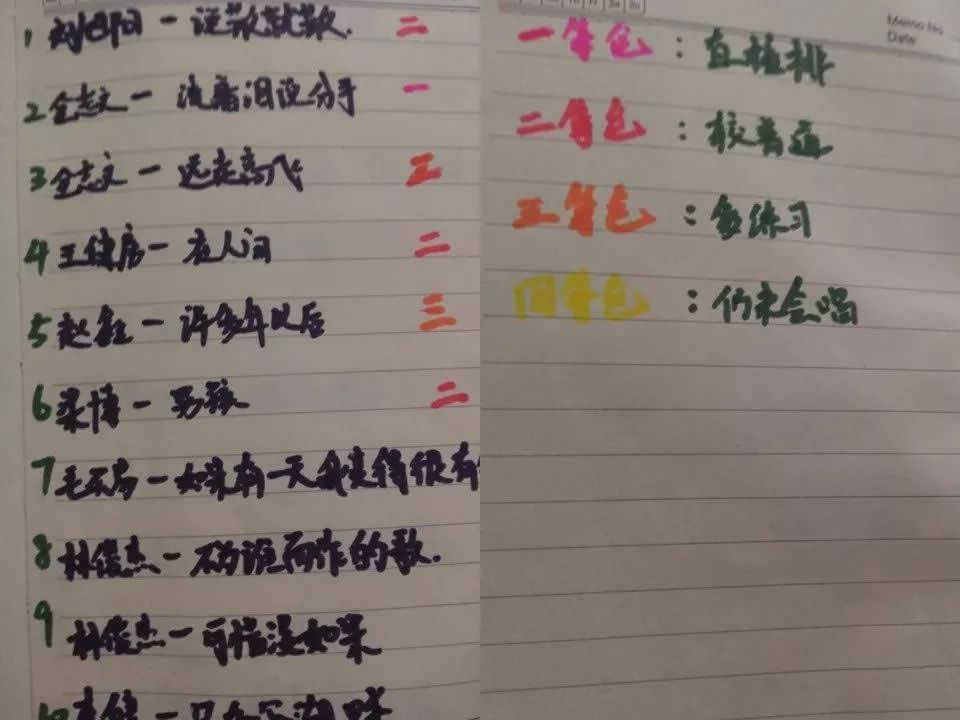 1 刘阳阳 — 说散就散. 二
2 全志文 — 流着泪说分手 一
3 全志文 — 远走高飞 三
4 王健房 — 在人间 二
5 赵鑫 — 许多年以后 三
6 梁博 — 男孩 二
7 毛不易 — 如果有一天我变得很有
8 林俊杰 — 不为谁而作的歌.
9 林俊杰 — 可惜没如果
10
Memo No
Date
一等色：直接排
二等色：
三等色：多练习
四等色：仍未会唱